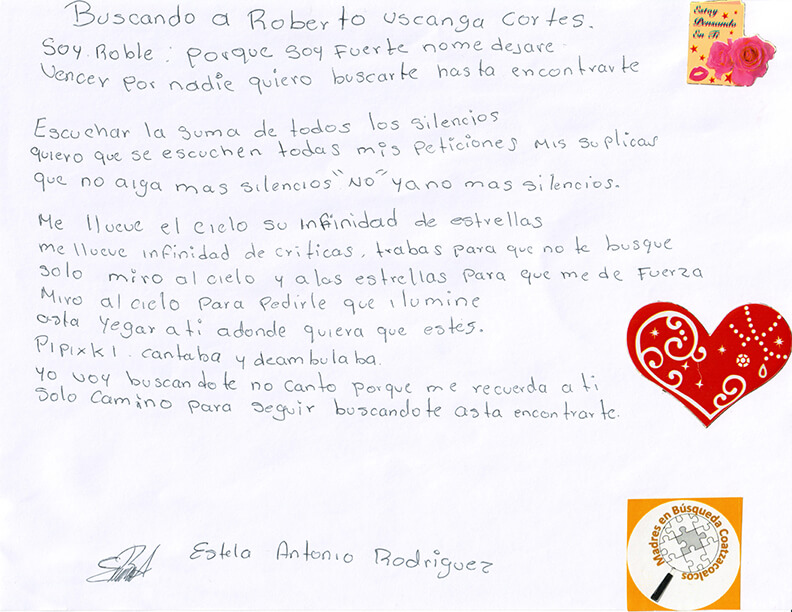 Buscando a Roberto uscanga cortes.
Estoy
Pensando
En Ti
Soy Roble: porque soy fuerte nome dejare
Vencer por nadie quiero buscarte hasta encontrarte
Escuchar la suma de todos los silencios
quiero que se escuchen todas mis peticiones mis suplicas
que no aiga mas silencios "NO" ya no mas silencios.
Me llueve el cielo su infinidad de estrellas
me llueve infinidad de criticas, trabas para que no te busque
solo miro al cielo y a las estrellas para que me de fuerza
Miro al cielo para pedirle que ilumine
asta yegar a ti adonde quiera que estes.
Pipixki. cantaba y deambulaba.
Yo voy buscandote no canto porque me recuerda a ti
solo camino para seguir buscandote asta encontrarte.
Estela Antonio Rodriguez
Madres en Búsqueda Coatzacoalcos